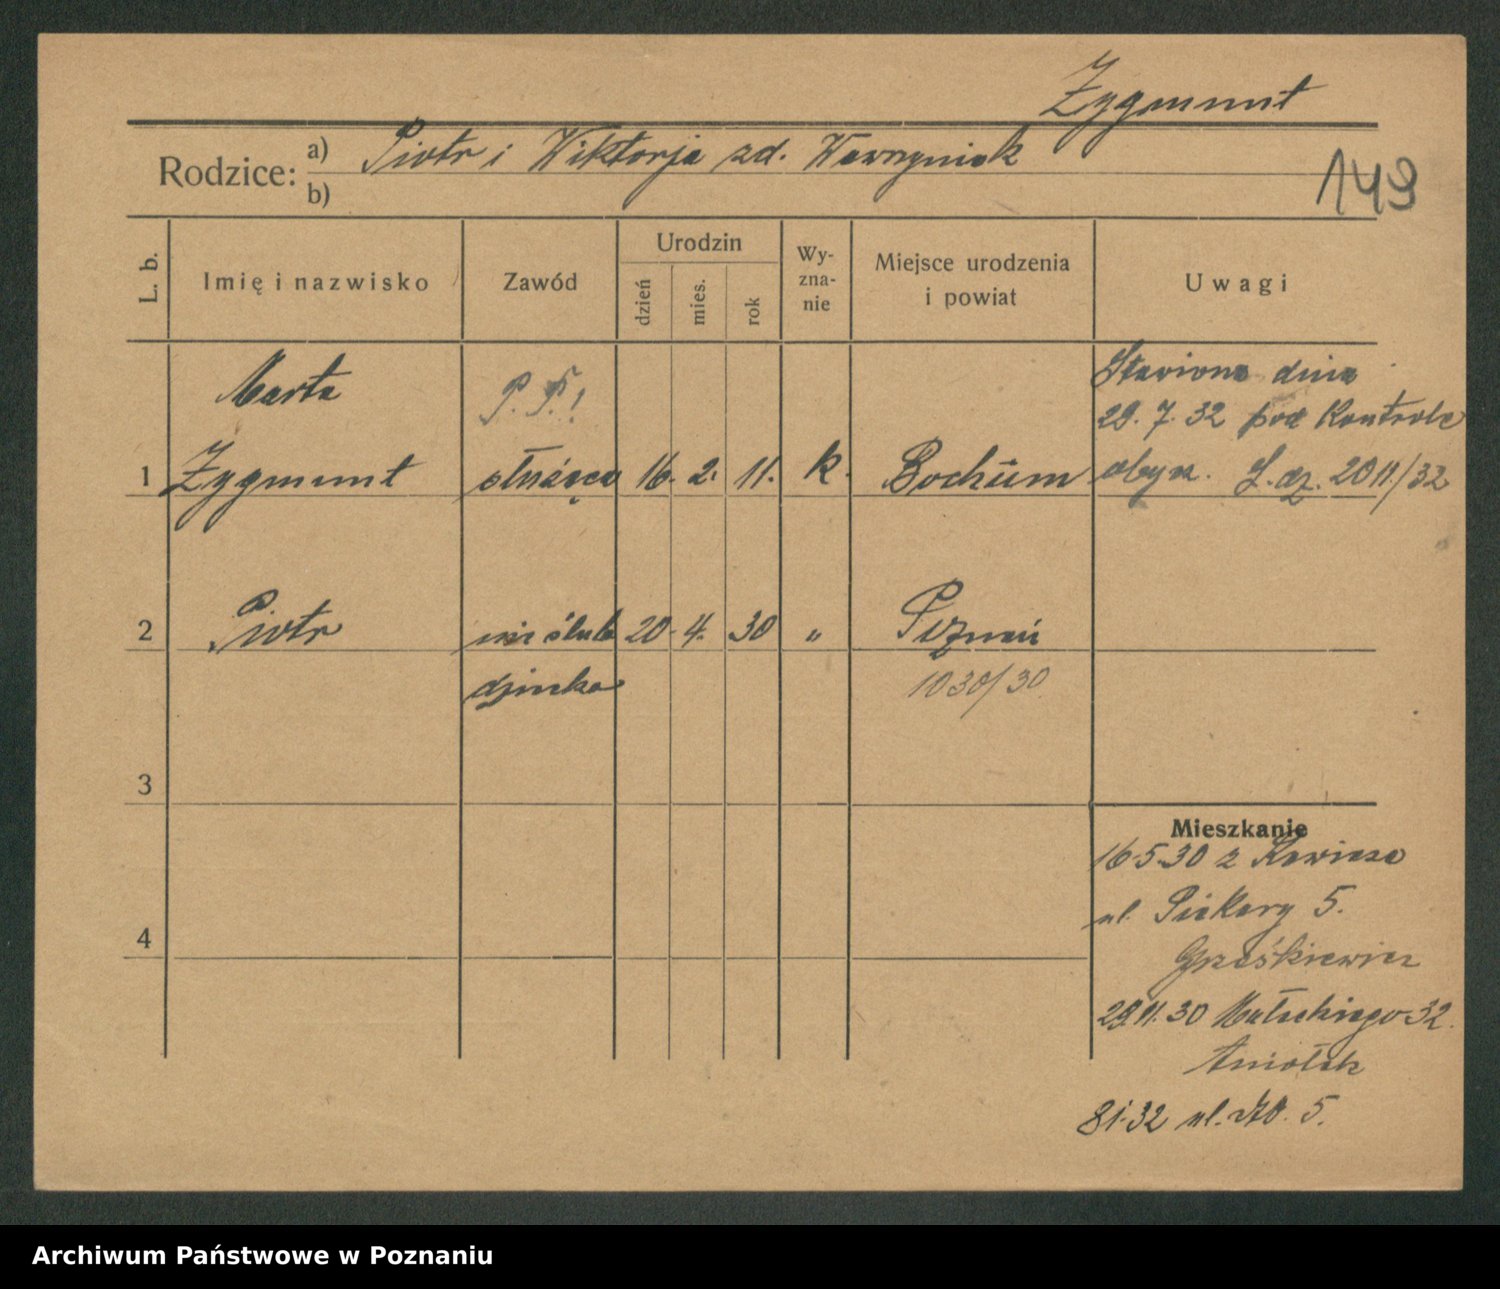 Zygmunt
Rodzice: a) Piotr i Wiktorja zd. Wawrzyniak
b)
149
L. b.
Imię i nazwisko
Zawód
Urodzin
dzień
mies.
rok
Wy-
zna-
nie
Miejsce urodzenia
i powiat
Uwagi
Marta
P. P.!
1 Zygmunt służąca 16. 2. 11. k. Bochum
Stawiona dnia
29. 7. 32 pod Kontrolę
obycz. L. dz. 2011/32
2 Piotr nie ślub 20. 4. 30 „ Poznań
dziecko 1030/30
3
4
Mieszkanie
16.5.30 z
ul. Piekary 5.
Grześkiewicz
29.11.30 Małeckiego 32.
Aniołek
8.1.32 ul. 5.
Archiwum Państwowe w Poznaniu